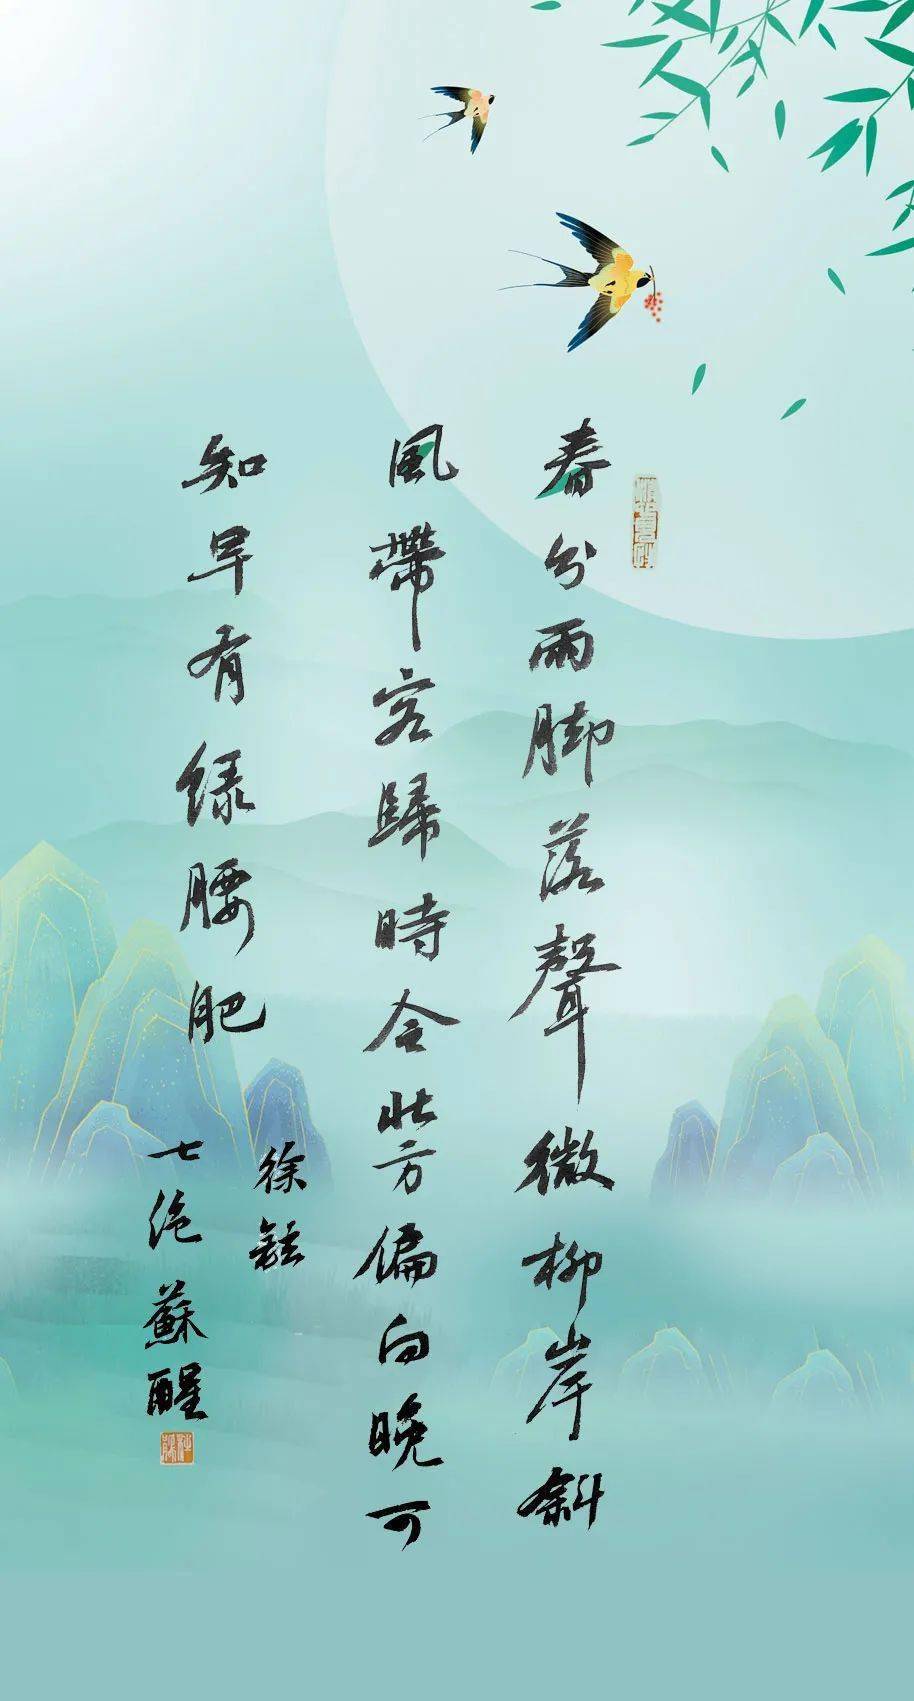 春分雨脚落聲微柳岸斜
風帶客歸時令北方偏向晚可
知早有绿腰肥
徐鉉
七绝 蘇醒